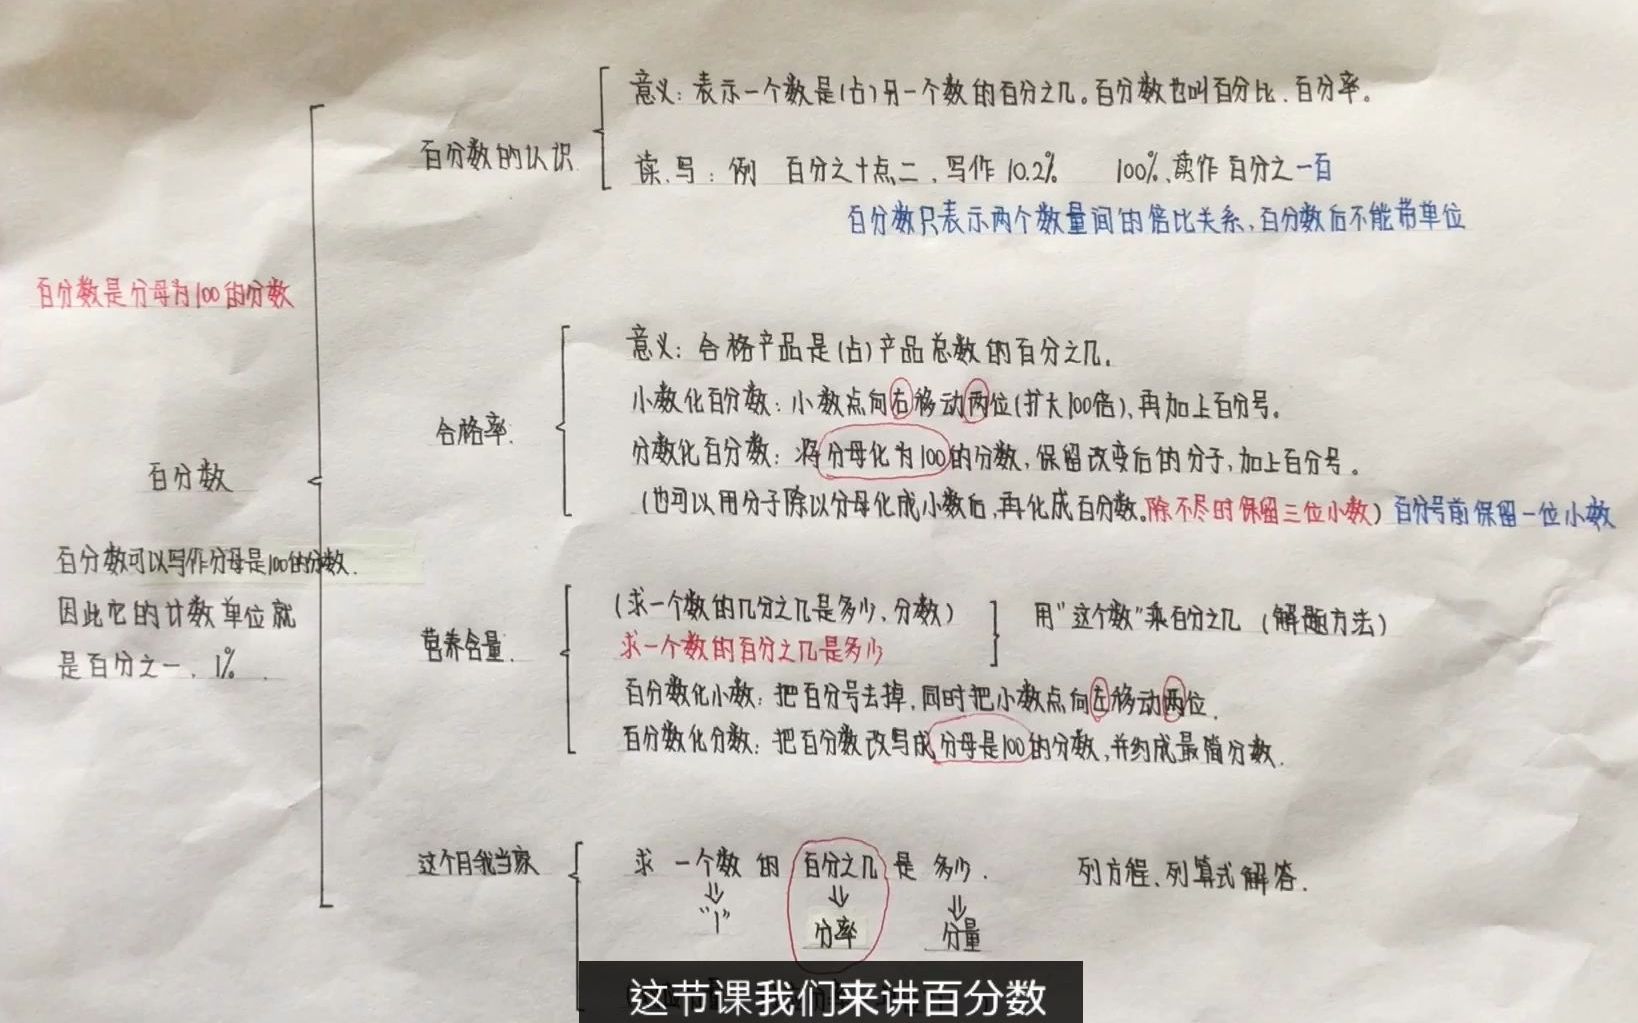 意义：表示一个数是(占)另一个数的百分之几。百分数也叫百分比、百分率。
百分数的认识
读、写：例 百分之十点二，写作10.2% 100%，读作百分之一百
百分数只表示两个数量间的倍比关系，百分数后不能带单位
百分数是分母为100的分数
意义：合格产品是(占)产品总数的百分之几。
小数化百分数：小数点向右移动两位(扩大100倍)，再加上百分号。
合格率
分数化百分数：将分母化为100的分数，保留改变后的分子，加上百分号。
百分数
(也可以用分子除以分母化成小数后，再化成百分数。除不尽时保留三位小数)百分号前保留一位小数
百分数可以写作分母是100的分数.
因此它的计数单位就
是百分之一、1%.
(求一个数的几分之几是多少，分数)
用"这个数"乘百分之几 (解题方法)
营养含量
求一个数的百分之几是多少
百分数化小数：把百分号去掉，同时把小数点向左移动两位.
百分数化分数：把百分数改写成分母是100的分数，并约成最简分数.
这个月我当家
求 一个数 的 百分之几 是 多少. 列方程、列算式解答.
"1" 分率 分量
这节课我们来讲百分数